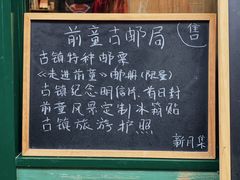 前童古邮局
售
古镇特种邮票
《走进前童》邮册(限量)
古镇纪念明信片、首日封
前童风景定制冰箱贴
古镇旅游护照
新月集